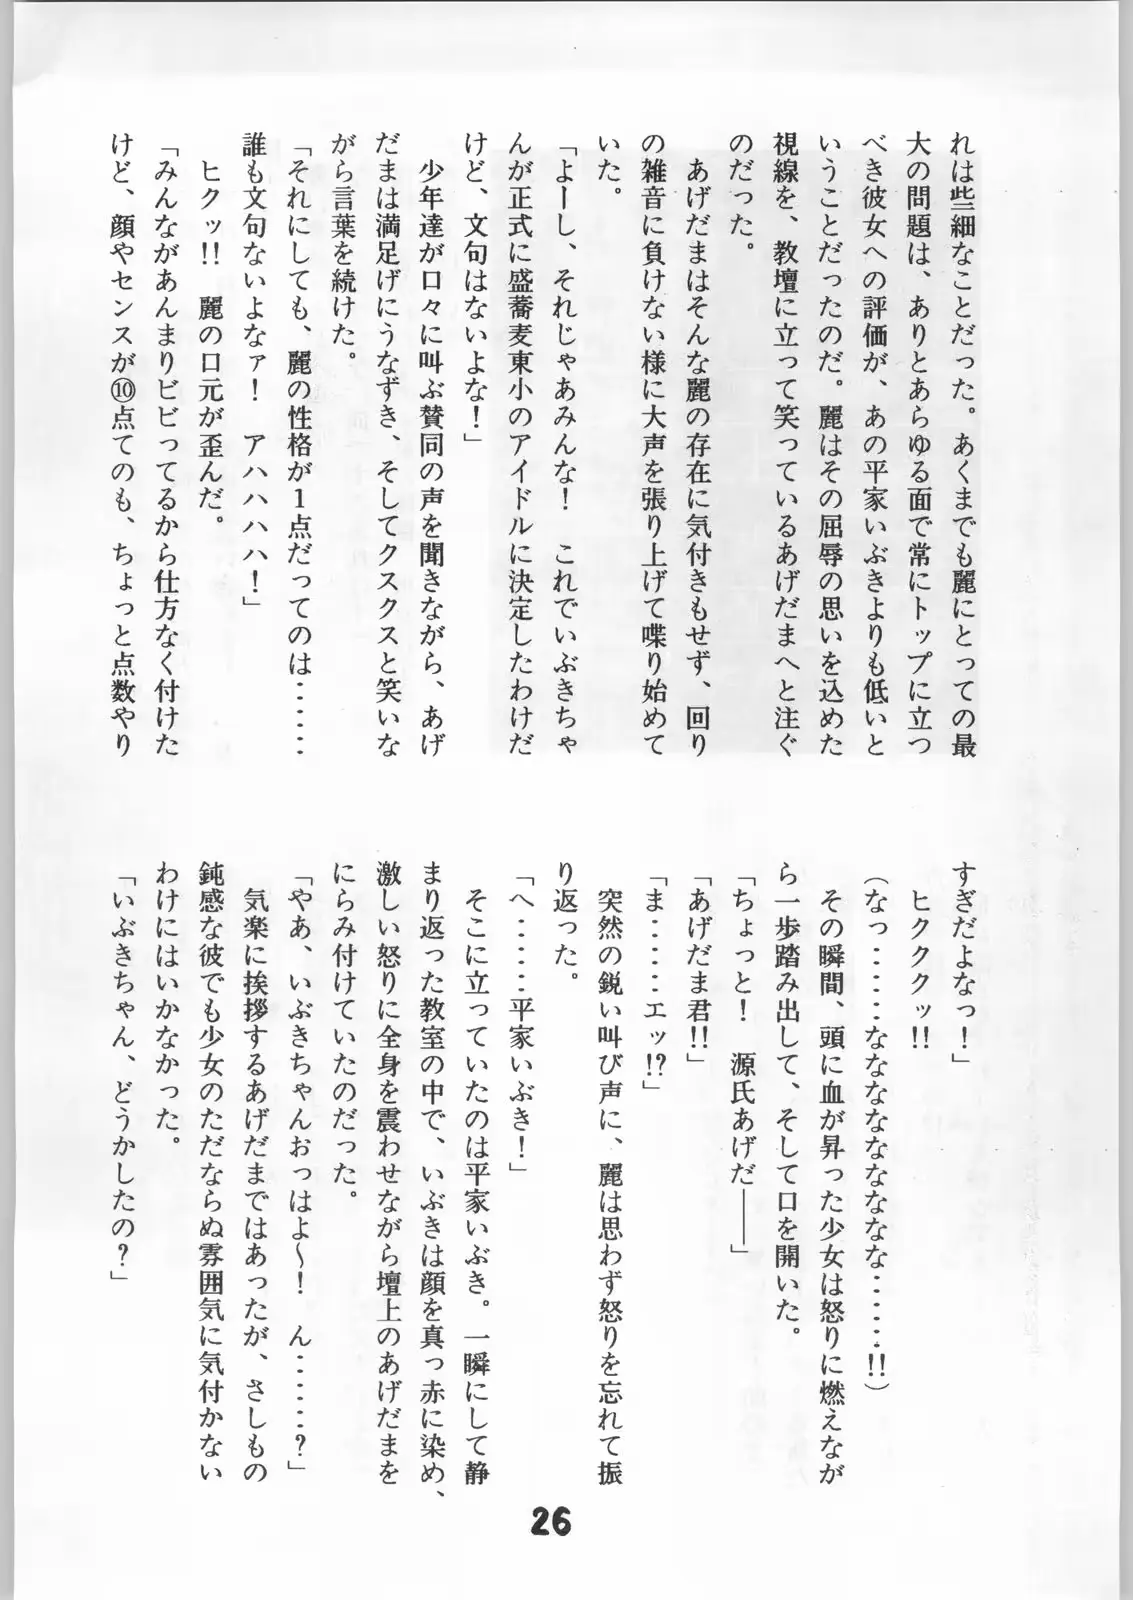 れは些細なことだった。あくまでも麗にとっての最
大の問題は、ありとあらゆる面で常にトップに立つ
べき彼女への評価が、あの平家いぶきよりも低いと
いうことだったのだ。麗はその屈辱の思いを込めた
視線を、教壇に立って笑っているあげだまへと注ぐ
のだった。
　あげだまはそんな麗の存在に気付きもせず、回り
の雑音に負けない様に大声を張り上げて喋り始めて
いた。
「よーし、それじゃあみんな！　これでいぶきちゃ
んが正式に盛蕎麦東小のアイドルに決定したわけだ
けど、文句はないよな！」
　少年達が口々に叫ぶ賛同の声を聞きながら、あげ
だまは満足げにうなずき、そしてクスクスと笑いな
がら言葉を続けた。
「それにしても、麗の性格が１点だってのは・・・・・
誰も文句ないよなァ！　アハハハハ！」
　ヒクッ!!　麗の口元が歪んだ。
「みんながあんまりビビってるから仕方なく付けた
けど、顔やセンスが⑩点てのも、ちょっと点数やり
すぎだよなっ！」
　ヒクククッ!!
（なっ・・・・・なななななななな・・・・・!!）
　その瞬間、頭に血が昇った少女は怒りに燃えなが
ら一歩踏み出して、そして口を開いた。
「ちょっと！　源氏あげだ――」
「あげだま君!!」
「ま・・・・・エッ!?」
　突然の鋭い叫び声に、麗は思わず怒りを忘れて振
り返った。
「へ・・・・・平家いぶき！」
　そこに立っていたのは平家いぶき。一瞬にして静
まり返った教室の中で、いぶきは顔を真っ赤に染め、
激しい怒りに全身を震わせながら壇上のあげだまを
にらみ付けていたのだった。
「やあ、いぶきちゃんおっはよ～！　ん・・・・・？」
　気楽に挨拶するあげだまではあったが、さしもの
鈍感な彼でも少女のただならぬ雰囲気に気付かない
わけにはいかなかった。
「いぶきちゃん、どうかしたの？」
26